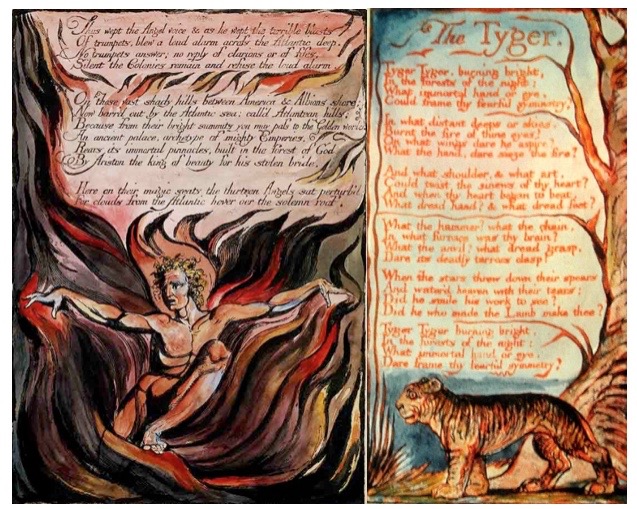 Thus wept the Angel voice & as he wept the terrible blasts
Of trumpets, blew a loud alarm across the Atlantic deep.
No trumpets answer; no reply of clarions or of fifes,
Silent the Colonies remain and refuse the loud alarm.
On those vast shady hills between America & Albions shore;
Now barred out by the Atlantic sea: call'd Atlantean hills:
Because from their bright summits you may pass to the Golden world
An ancient palace, archetype of mighty Emperies,
Rears its immortal pinnacles, built in the forest of God
By Ariston the king of beauty for his stolen bride.
Here on their magic seats the thirteen Angels sat perturb'd
For clouds from the Atlantic hover oer the solemn roof.
The Tyger.
Tyger Tyger, burning bright,
In the forests of the night:
What immortal hand or eye,
Could frame thy fearful symmetry?
In what distant deeps or skies,
Burnt the fire of thine eyes?
On what wings dare he aspire?
What the hand, dare sieze the fire?
And what shoulder, & what art,
Could twist the sinews of thy heart?
And when thy heart began to beat,
What dread hand? & what dread feet?
What the hammer? what the chain,
In what furnace was thy brain?
What the anvil? what dread grasp,
Dare its deadly terrors clasp!
When the stars threw down their spears
And water'd heaven with their tears:
Did he smile his work to see?
Did he who made the Lamb make thee?
Tyger Tyger burning bright,
In the forests of the night:
What immortal hand or eye,
Dare frame thy fearful symmetry?